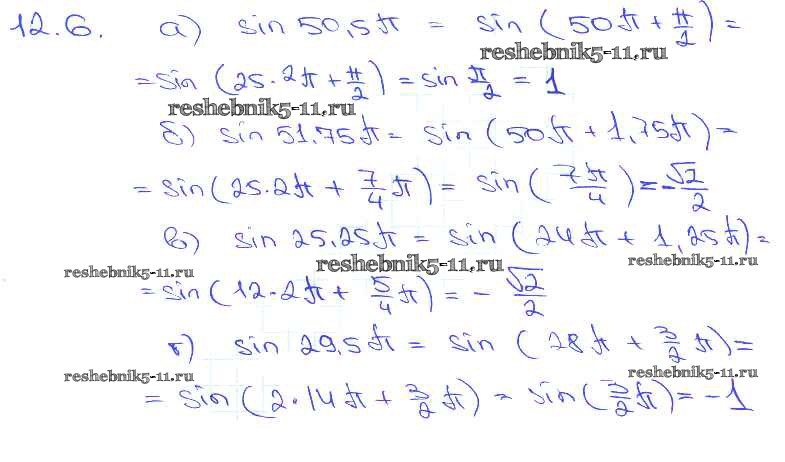 12.6. а) sin 50,5π = sin (50π + π/2) =
reshebnik5-11.ru
= sin (25·2π + π/2) = sin π/2 = 1
reshebnik5-11.ru
б) sin 51,75π = sin (50π + 1,75π) =
= sin (25·2π + 7/4 π) = sin (7π/4) = -√2/2
в) sin 25,25π = sin (24π + 1,25π) =
reshebnik5-11.ru reshebnik5-11.ru reshebnik5-11.ru
= sin (12·2π + 5/4 π) = - √2/2
г) sin 29,5π = sin (28π + 3/2 π) =
reshebnik5-11.ru reshebnik5-11.ru
= sin (2·14π + 3/2 π) = sin (3/2 π) = -1